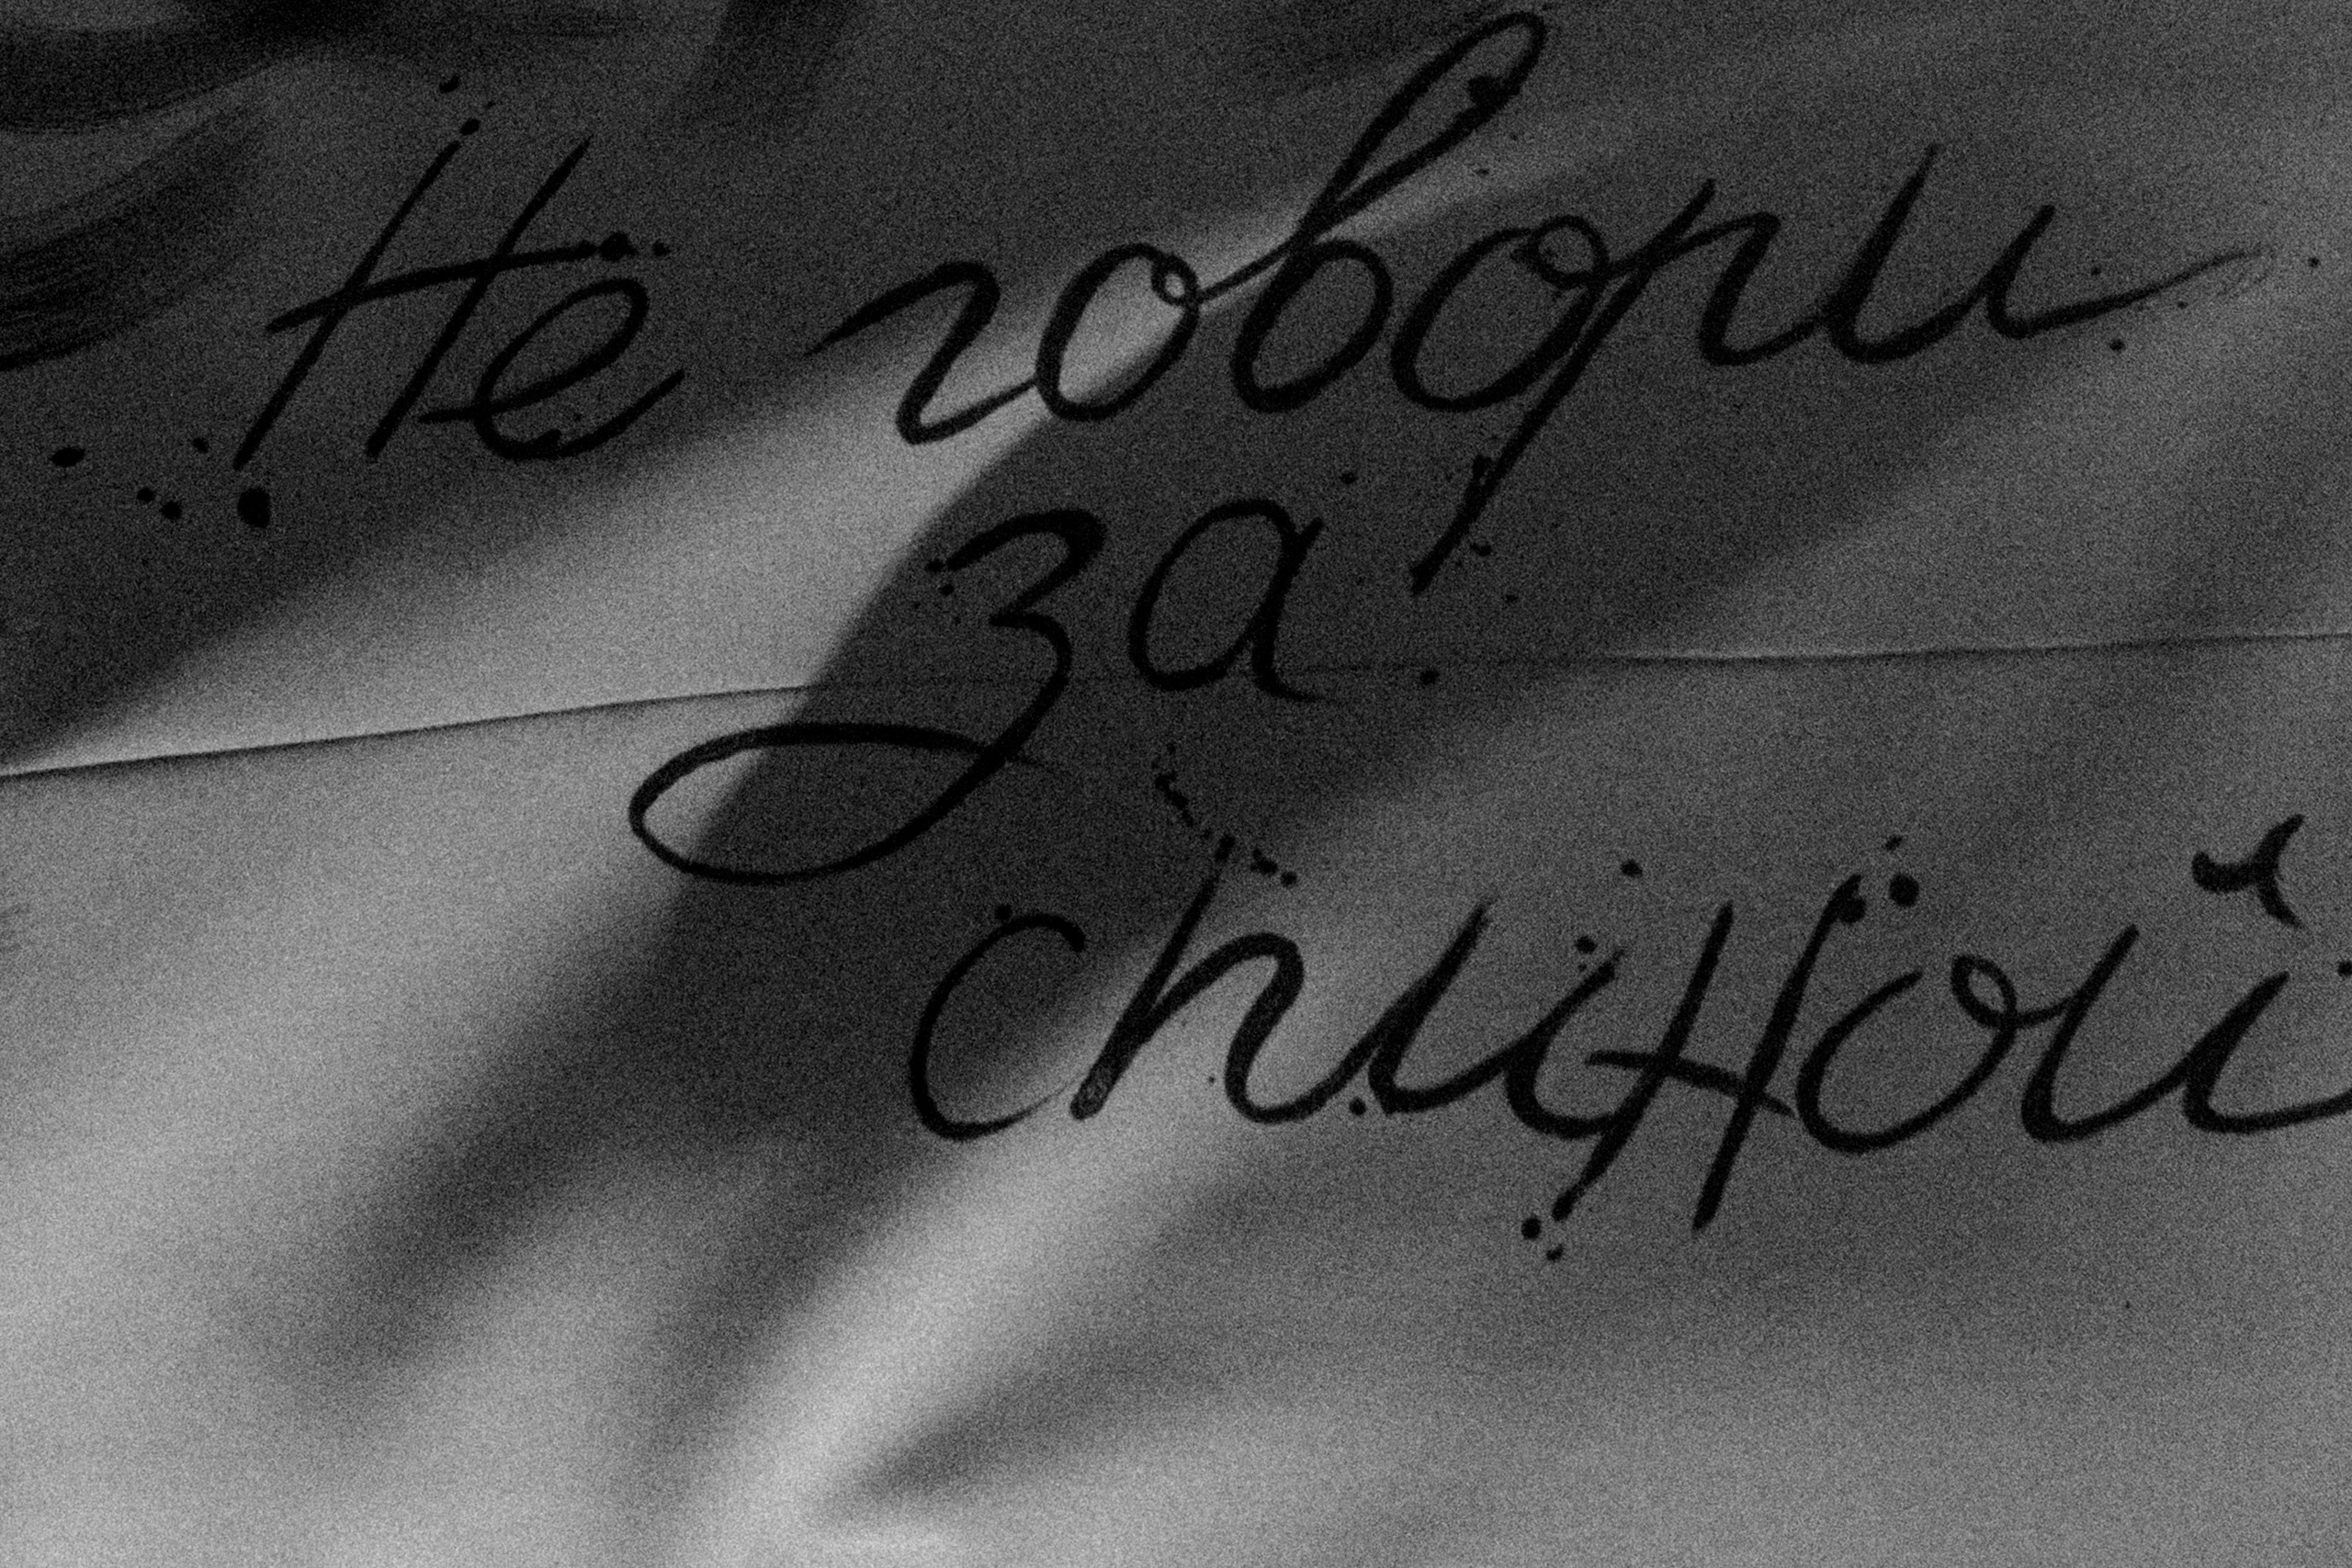 Не говори
за
спиной